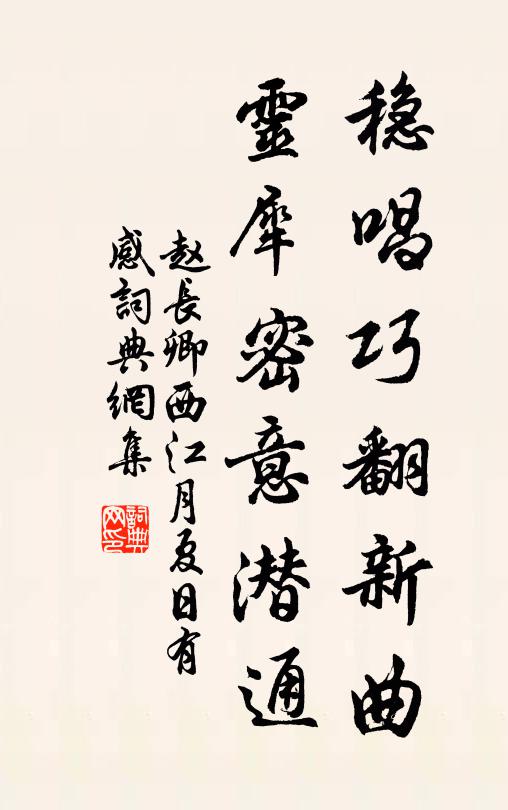 穏唱巧翻新曲
靈犀密意潜通
赵長卿西江月夏日有
感詞典網集
詞典
网印